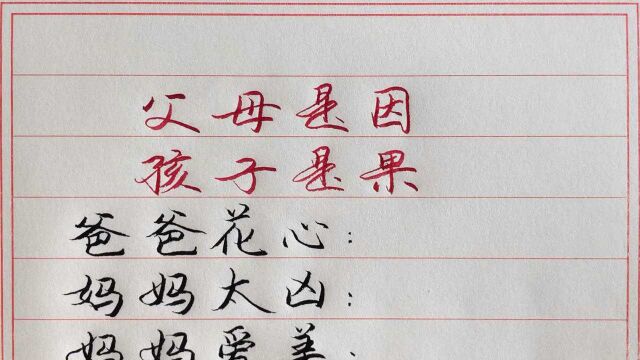 父母是因
孩子是果
爸爸花心:
妈妈太凶:
妈妈爱美: